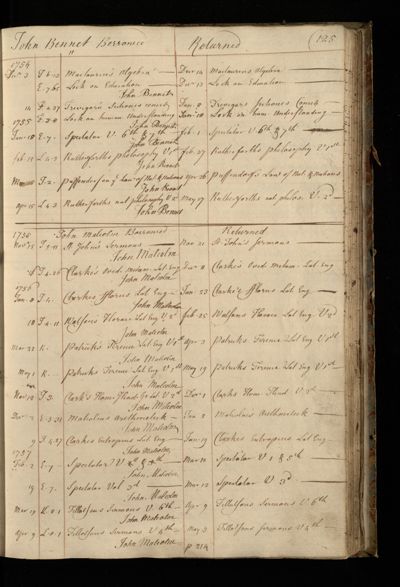 John Bennet Borrowed Returned (125
1754
Dec 3 F 6-13 Maclaurin's Algebra Dec 14 Maclaurins Algebra
E-7-65 Lock on Education Dec 17 Lock on Education
John Bennet
1755
Lock on human Understanding Lock on hum: Understanding
John Bennet
Jan-18 E-7- Spectator V. 6th & 7th Feb 1 Spectator V 6th & 7th
John Bennet
Feb 11 L 4-3 Rutherforths philosophy V 1st Feb 27 Rutherforths philosophy V 1st
John Bennet
F-2- Puffendorf on ye Law of Nat & Nations Apr 26 Puffendorfs Law of Nat & Nations
John Bennet
Apr 15 L 4-3 Rutherforths nat philosophy V 2d May 17 Rutherforths nat philos. V 2d
John Bennet
1755 John Malcolm Borrowed Returned
Nov 15 St John's Sermons Nov 21 St John's Sermons
John Malcolm
Clarke's Ovid metam- Lat Eng Dec 8 Clarke's Ovid metam- Lat Eng
John Malcolm
1756
Jan 8 F 4- Clarkes Florus Lat Eng Jan 23 Clarke's Florus Lat Eng
John Malcolm
Watsons Horace Lat Eng V 2d Feb 25 Watsons Horace Lat Eng V 2d
John Malcolm
Mar 22 K- Patricks Terence Lat Eng V 1st Apr 3 Patricks Terence Lat Eng V 1st
John Malcolm
May 1 K- Patricks Terence Lat Eng V 1st May 19 Patricks Terence Lat Eng V 1st
John Malcolm
Nov 18 F 3- Clark's Hom: Iliad Gr Lat V 2d Dec 1 Clarks Hom Iliad V 2d
John Malcolm
Dec 2 E-3-31 Malcolms Arithmetick Jan 2 Malcolms Arithmetick
John Malcolm
9 F 4-27 Clarkes Eutropius Lat Eng Jan 19 Clarkes Eutropius Lat Eng
John Malcolm
1757
Feb 2 E-7- Mar 10 Spectator V 1 & 5th
John Malcolm
15 E-7- Spectator Vol 3d Mar 12 Spectator V 3d
John Malcolm
Mar 19 L 0-1 Tillotsons Sermons V 6th Apr 9 Tillotsons Sermons V 6th
John Malcolm
Apr 9 L 0-1 Tillotsons Sermons V 4th May 3 Tillotsons Sermons V 4th
John Malcolm p 214